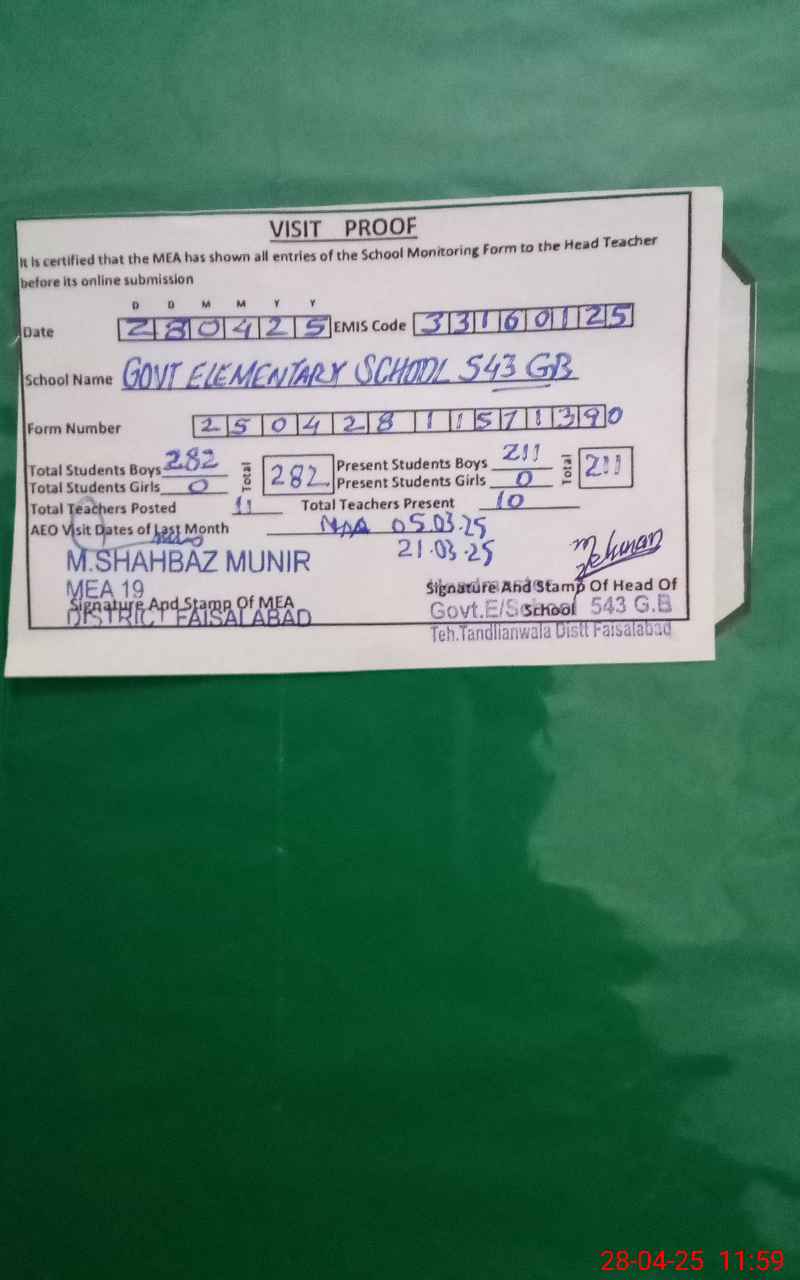 VISIT PROOF
It is certified that the MEA has shown all entries of the School Monitoring Form to the Head Teacher
before its online submission
D D M M Y Y
Date 280425 EMIS Code 33160125
School Name GOVT ELEMENTARY SCHOOL 543 GB
Form Number 25042811571390
Total Students Boys 282 Total 282 Present Students Boys 211 Total 211
Total Students Girls 0 Present Students Girls 0
Total Teachers Posted 11 Total Teachers Present 10
AEO Visit Dates of Last Month 05.03.25
21.03.25
M.SHAHBAZ MUNIR
MEA 19
Signature And Stamp Of MEA
DISTRICT FAISALABAD
Signature And Stamp Of Head Of
School
Govt.E/School 543 G.B
Teh.Tandlianwala Distt Faisalabad
28-04-25 11:59